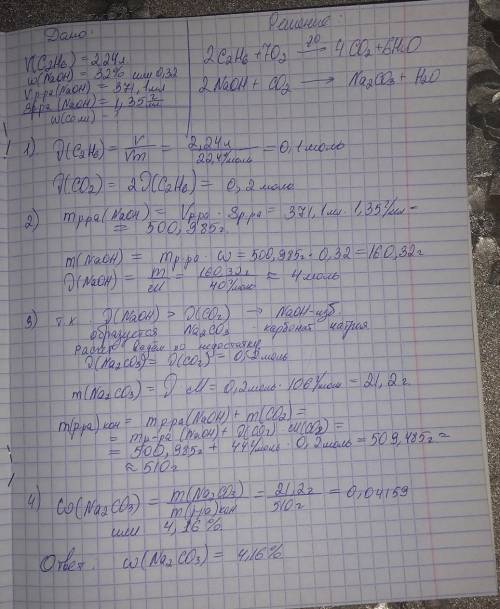 Дано:
Решение:
V(C2H6) = 2,24л
ω(NaOH) = 32% или 0,32
Vр-ра(NaOH) = 371,1мл
ρр-ра(NaOH) = 1,35 г/мл
ω(соли) -
2C2H6 + 7O2 → 4CO2 + 6H2O
2NaOH + CO2 → Na2CO3 + H2O
1) ν(C2H6) = V/Vm = 2,24л/22,4л/моль = 0,1 моль
ν(CO2) = 2ν(C2H6) = 0,2 моль
2) mр-ра(NaOH) = Vр-ра · ρр-ра = 371,1мл · 1,35г/мл =
= 500,985г
m(NaOH) = mр-ра · ω = 500,985г · 0,32 = 160,32г
ν(NaOH) = m/M = 160,32г/40г/моль ≈ 4 моль
3) т.к. ν(NaOH) > ν(CO2) → NaOH-изб.
образуется Na2CO3 карбонат натрия
расчет ведем по недостатку
ν(Na2CO3) = ν(CO2) = 0,2 моль
m(Na2CO3) = ν M = 0,2моль · 106г/моль = 21,2г
m(р-ра)кон = mр-ра(NaOH) + m(CO2) =
= mр-ра(NaOH) + ν(CO2) · M(CO2) =
= 500,985г + 44г/моль · 0,2моль = 509,485г ≈
≈ 510г
4) ω(Na2CO3) = m(Na2CO3)/m(р-ра)кон = 21,2г/510г = 0,04159
или 4,16%
Ответ: ω(Na2CO3) = 4,16%